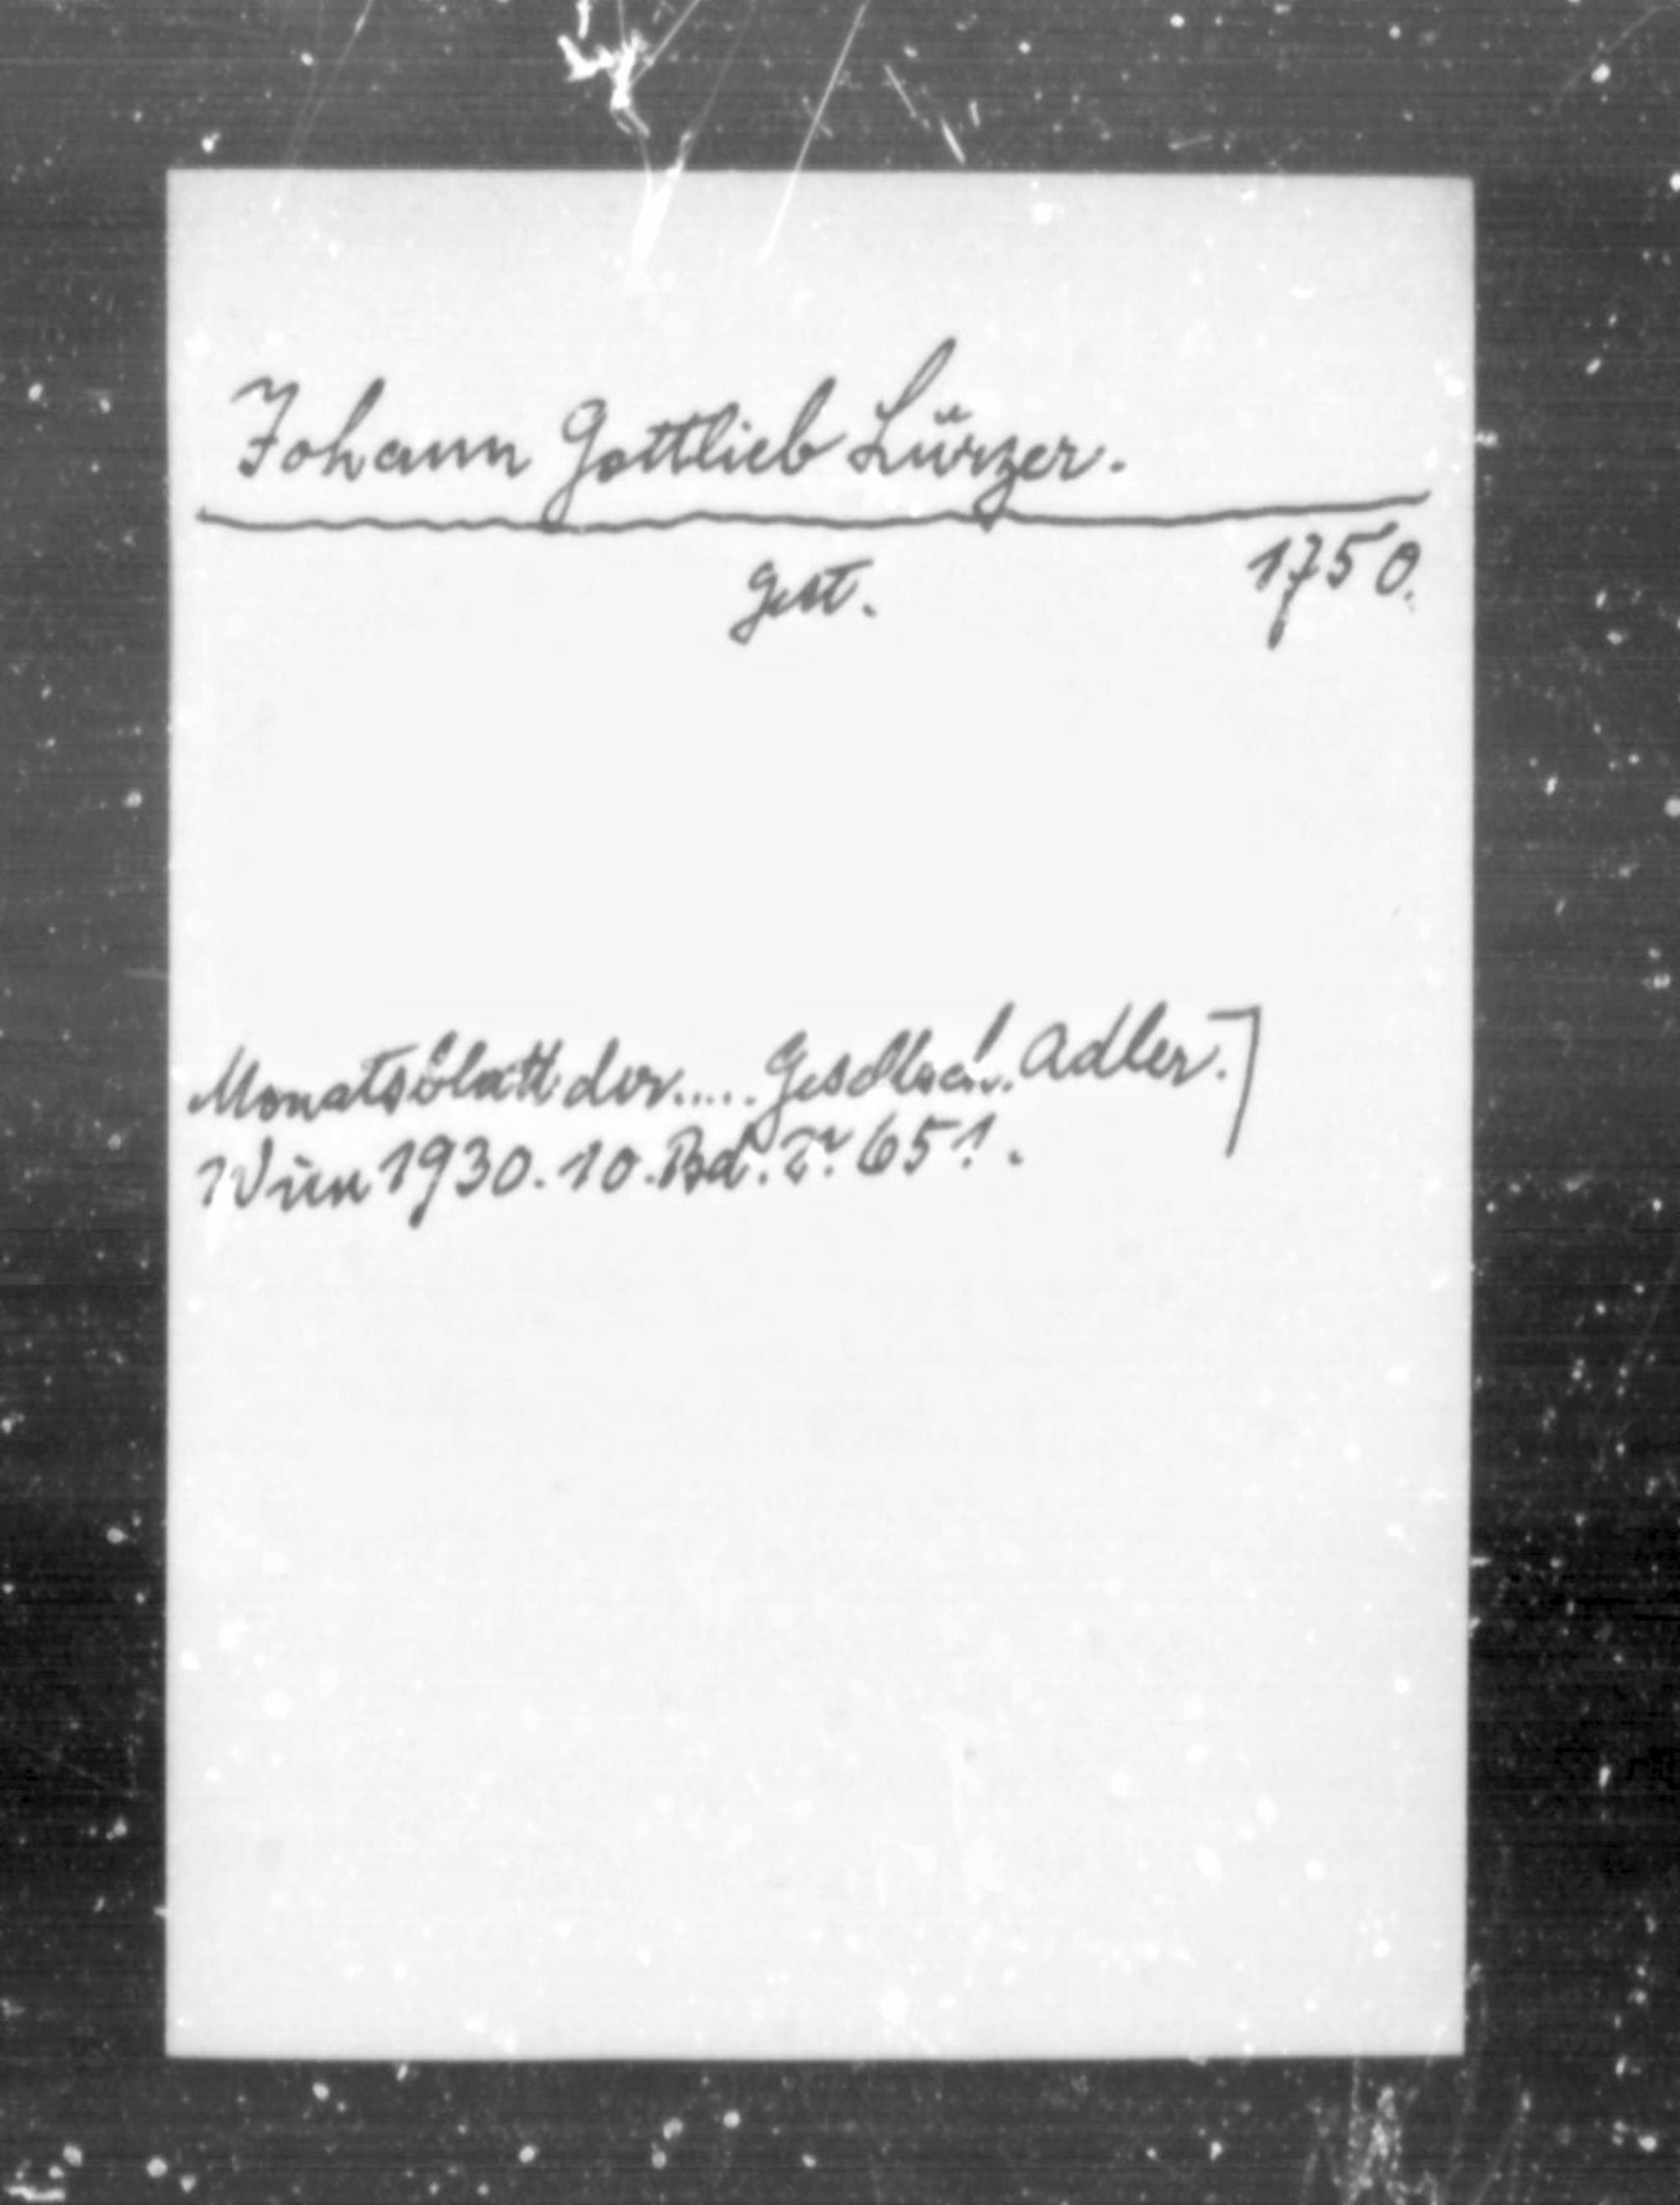 Johann Gottlieb Lürzer.
gest. 1750.
Monatsblatt der..... Gesellsch. Adler.
Wien 1930. 10. Bd. 651.